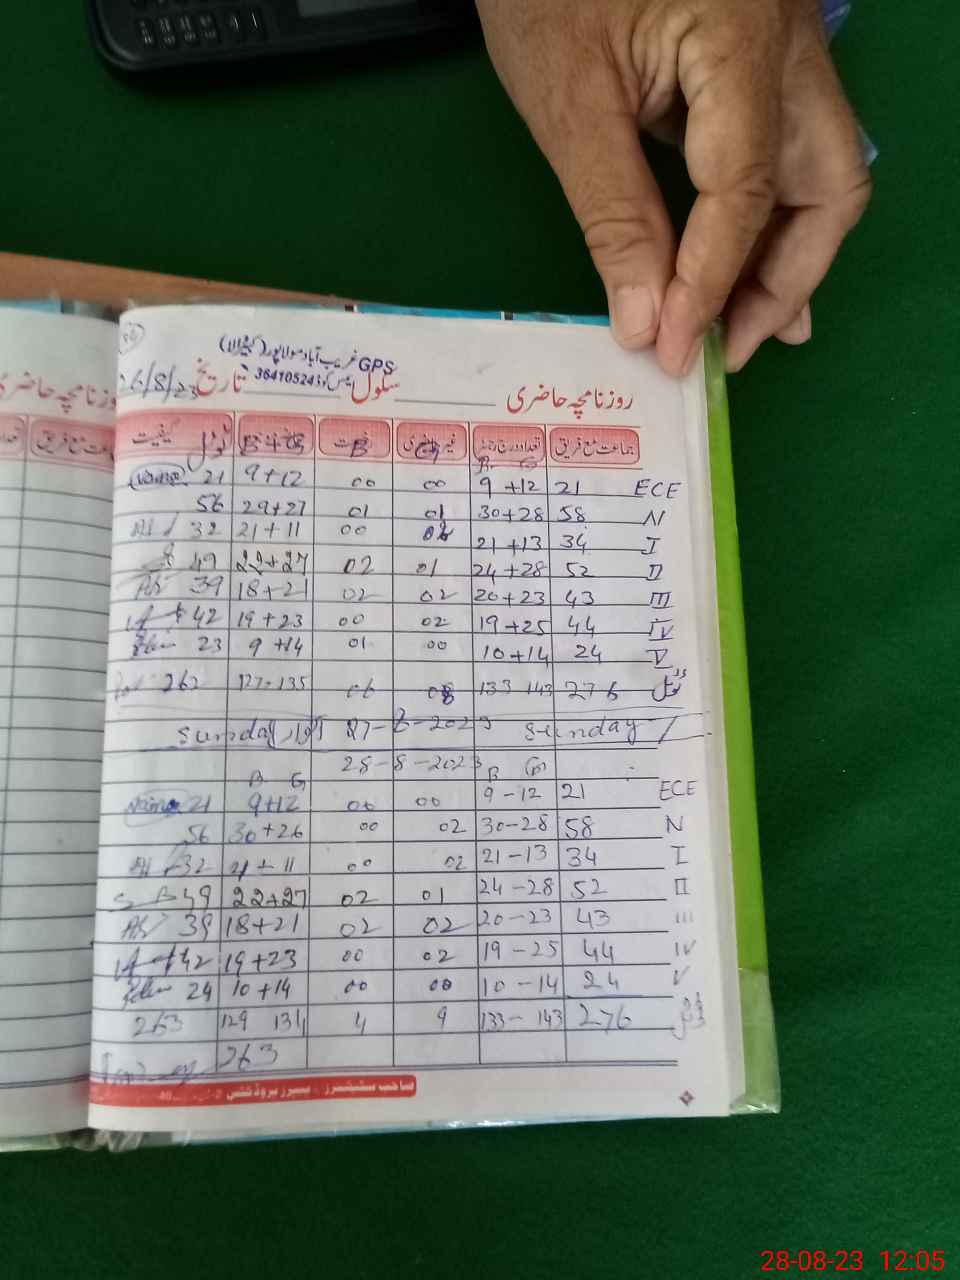 GPS غریب آباد مولاپور
روزنامچہ حاضری سکول 364105243 تاریخ 26/8/23
جماعت مع فریق تعداد درج رجسٹر غیر حاضری رخصت کیفیت ٹوٹل
B G
ECE 21 9+12 00 00 9+12 21
N 58 30+28 01 01 29+27 56
I 34 21+13 00 21+11 32
II 52 24+28 01 02 22+27 49
III 43 20+23 02 02 18+21 39
IV 44 19+25 02 00 19+23 42
V 24 10+14 00 01 9+14 23
ٹوٹل 276 133 143 08 06 127-135 262
Sunday 27-8-2023 Sunday
28-8-2023
B G B G
ECE 21 9-12 00 00 9+12 21
N 58 30-28 02 00 30+26 56
I 34 21-13 02 00 21+11 32
II 52 24-28 01 02 22+27 49
III 43 20-23 02 02 18+21 39
IV 44 19-25 02 00 19+23 42
V 24 10-14 00 00 10+14 24
276 133-143 9 4 129 134 263
263
28-08-23 12:05